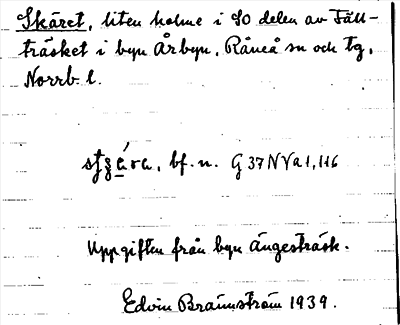 Skäret, liten holme i SO delen av Täll-
träsket i byn Årbyn, Råneå sn och tg,
Norrb. l.
bf. n. G 37 N V a 1, 116
Uppgiften från byn Ängesträsk.
Edvin Brännström 1939.